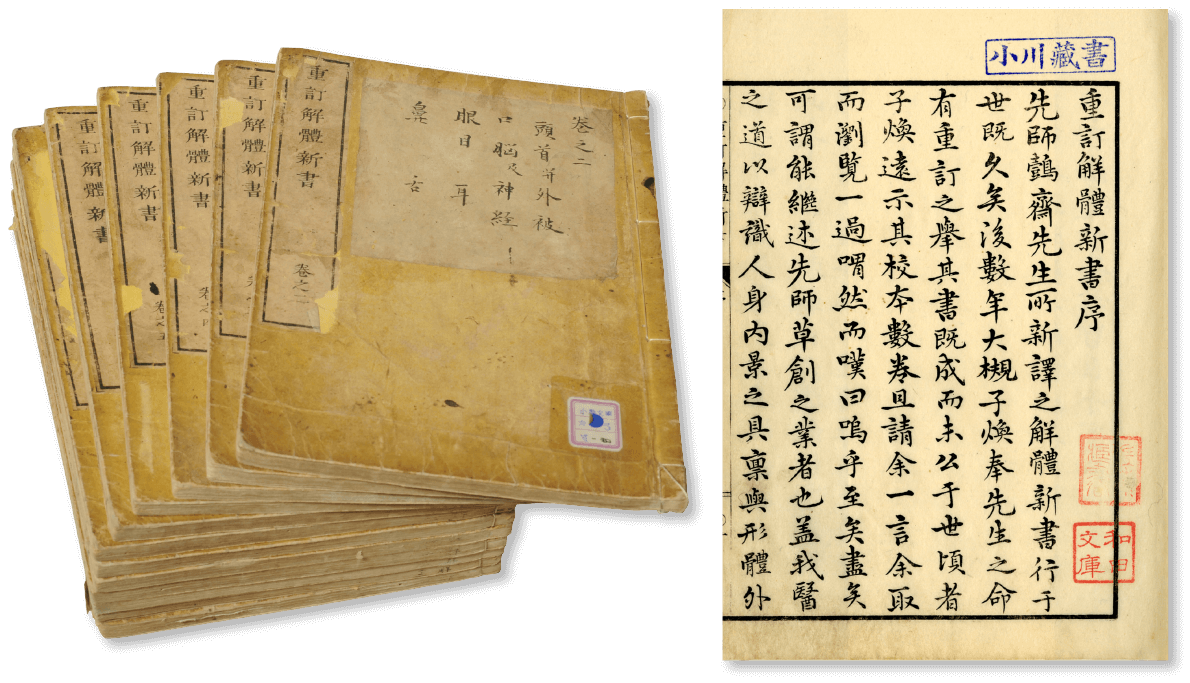 重訂解體新書
重訂解體新書 卷之五
重訂解體新書 卷之四
重訂解體新書
重訂解體新書 卷之二
卷之二
頭首并外被
口 腦及神経
眼目 耳
鼻 舌
小川藏書
重訂解體新書序
先師鷧齋先生所新譯之解體新書行于
世既久矣後數年大槻子煥奉先生之命
有重訂之舉其書既成而未公于世頃者
子煥遠示其校本數卷且請余一言余取
而瀏覽一過喟然而嘆曰嗚乎至矣盡矣
可謂能繼述先師草創之業者也蓋我醫
之道以辯識人身内景之具稟與形體外
和田文庫